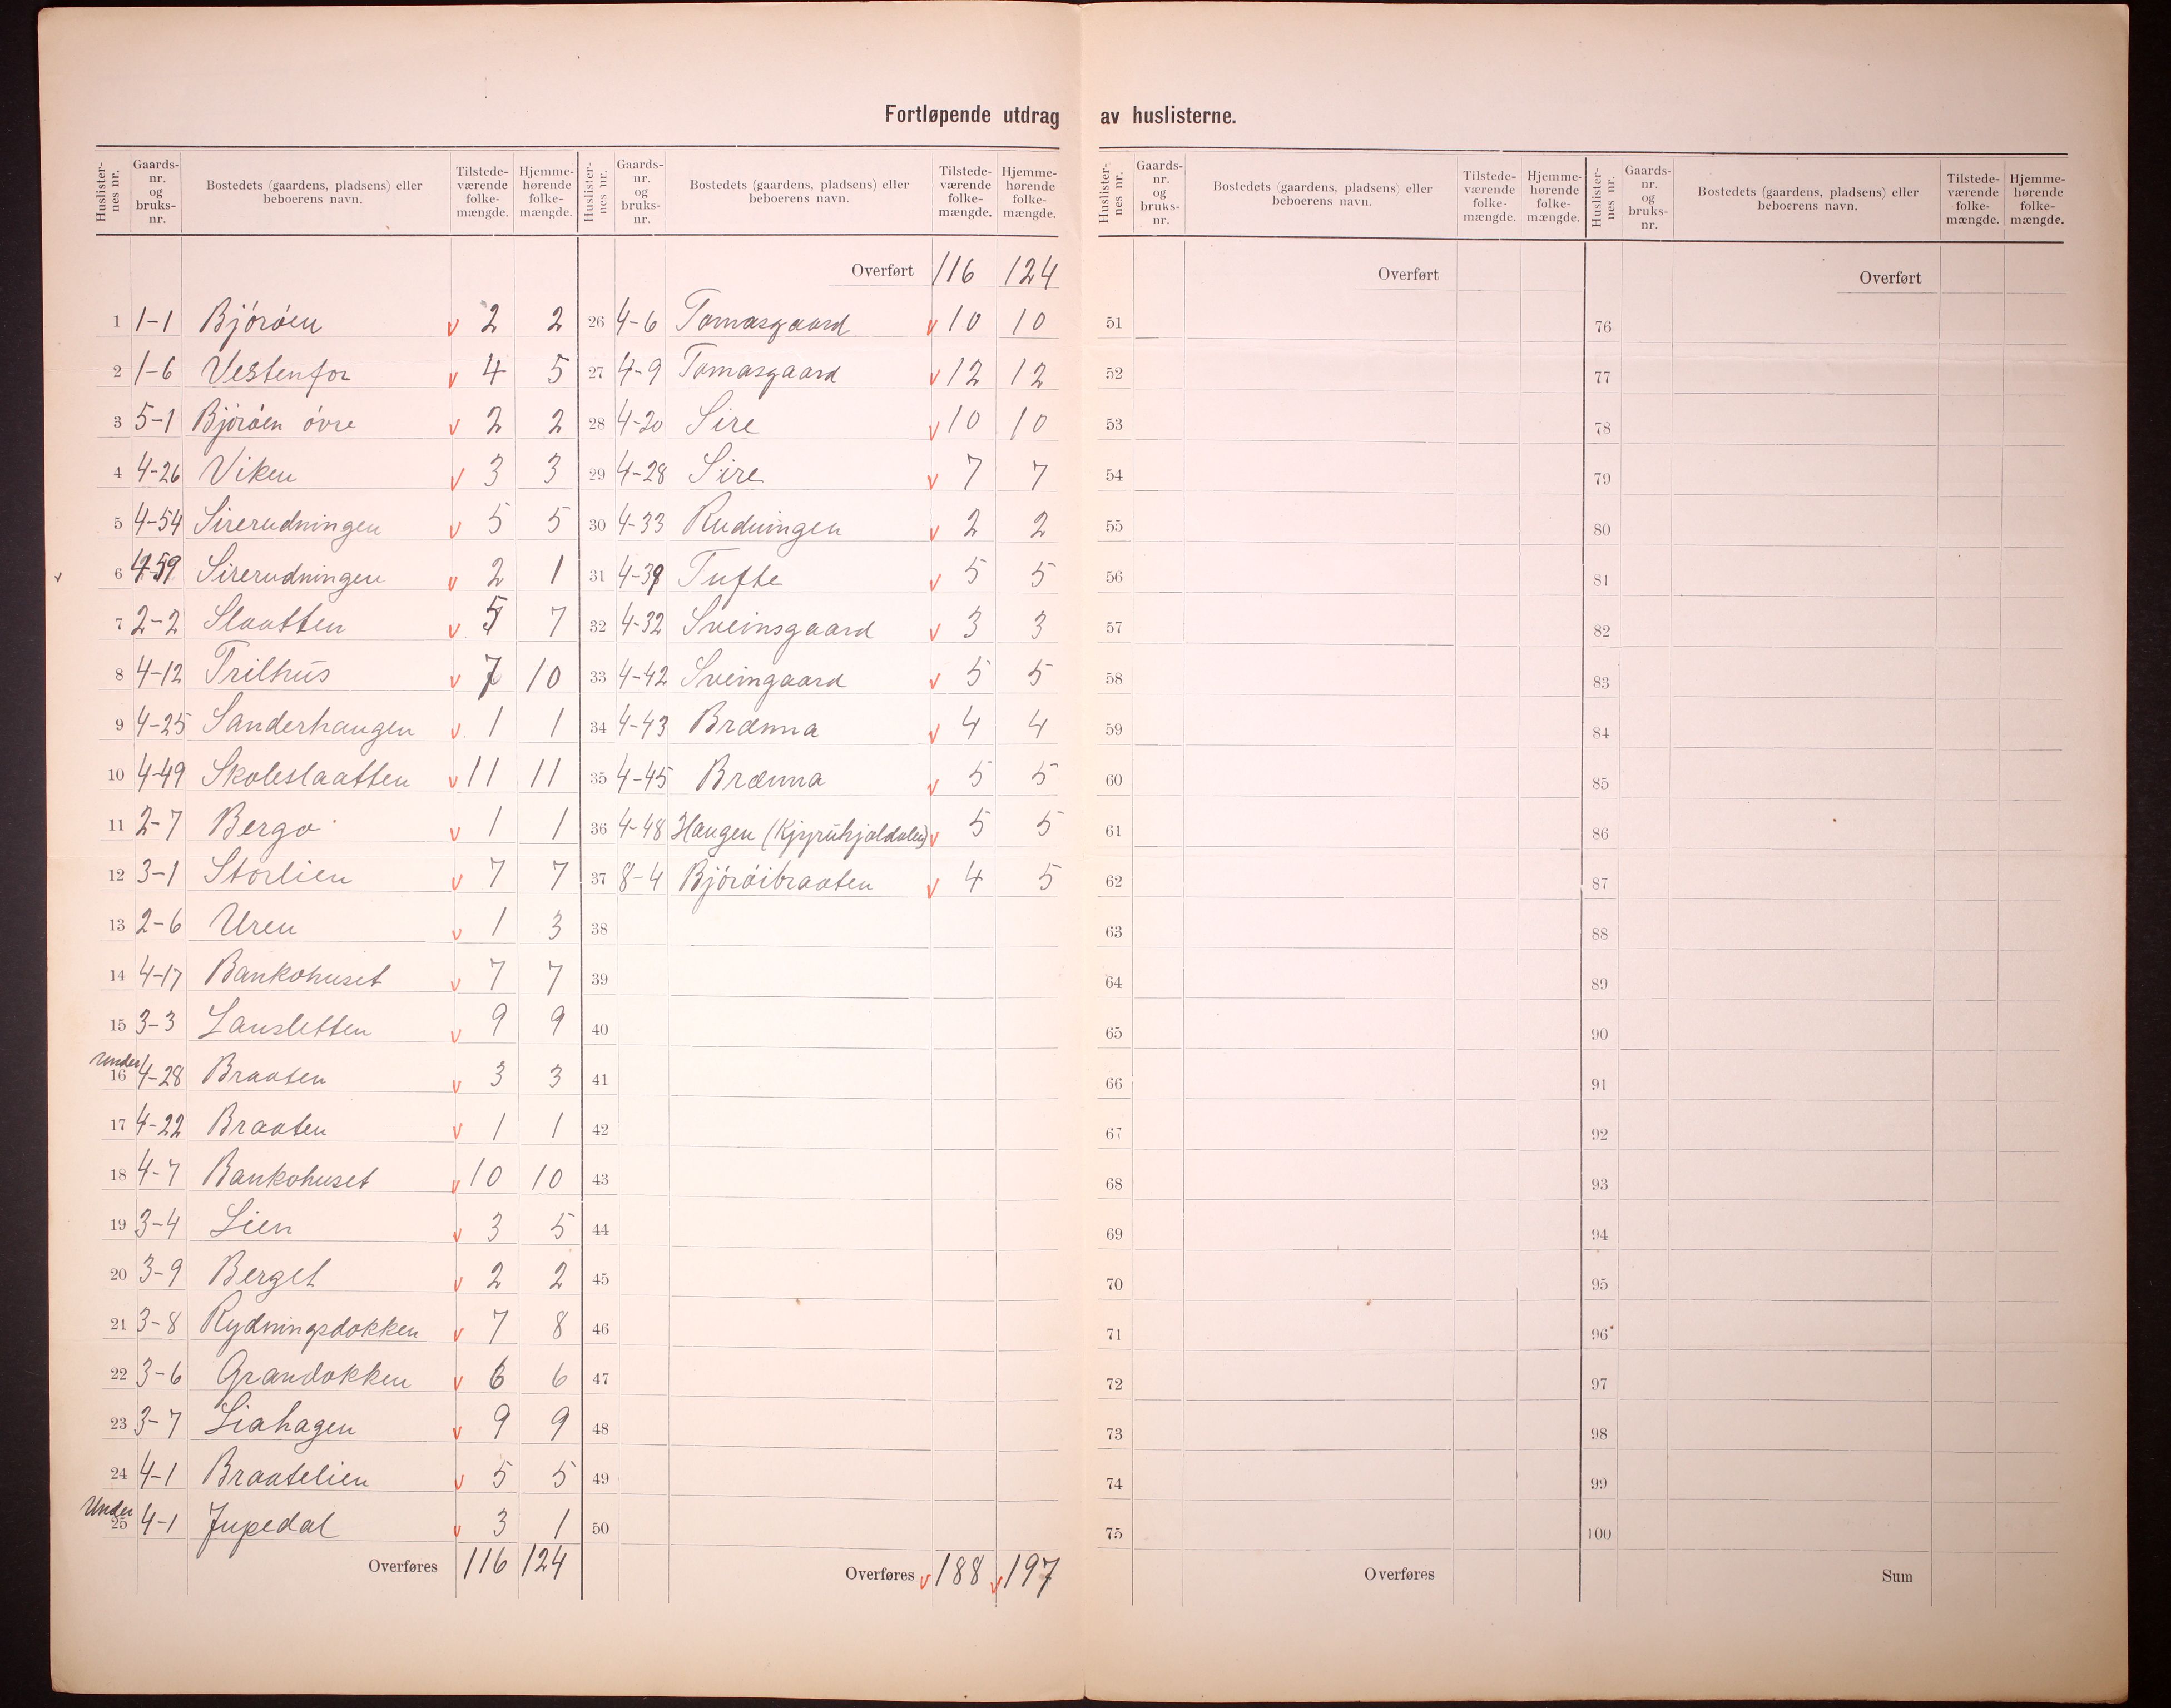 Fortløpende utdrag av huslisterne.
Huslisternes nr. Gaards-nr. og bruks-nr. Bostedets (gaardens, pladsens) eller beboerens navn. Tilstedeværende folkemængde. Hjemmehørende folkemængde.
1 1-1 Björöen v 2 2
2 1-6 Vestenfor v 4 5
3 5-1 Björöen övre v 2 2
4 4-26 Viken v 3 3
5 4-54 Sirerudningen v 5 5
v 6 4-59 Sirerudningen v 2 1
7 2-2 Slaatten v 5 7
8 4-12 Trilhus v 7 10
9 4-25 Sanderhaugen v 1 1
10 4-49 Skoleslaatten v 11 11
11 2-7 Bergo v 1 1
12 3-1 Storlien v 7 7
13 2-6 Uren v 1 3
14 4-17 Bankohuset v 7 7
15 3-3 Lausletten v 9 9
Under
16 4-28 Braaten v 3 3
17 4-22 Braaten v 1 1
18 4-7 Bankohuset v 10 10
19 3-4 Lien v 3 5
20 3-9 Berget v 2 2
21 3-8 Rydningsdokken v 7 8
22 3-6 Grandokken v 6 6
23 3-7 Liahagen v 9 9
24 4-1 Braatelien v 5 5
Under
25 4-1 Jupedal v 3 1
Overføres 116 124
Huslisternes nr. Gaards-nr. og bruks-nr. Bostedets (gaardens, pladsens) eller beboerens navn. Tilstedeværende folkemængde. Hjemmehørende folkemængde.
Overført 116 124
26 4-6 Tomasgaard v 10 10
27 4-9 Tomasgaard v 12 12
28 4-20 Sire v 10 10
29 4-28 Sire v 7 7
30 4-33 Rudningen v 2 2
31 4-39 Tufte v 5 5
32 4-32 Sveinsgaard v 3 3
33 4-42 Sveingaard v 5 5
34 4-43 Brænna v 4 4
35 4-45 Brænna v 5 5
36 4-48 Haugen v 5 5
37 8-4 Björöibraaten v 4 5
38
39
40
41
42
43
44
45
46
47
48
49
50
Overføres v 188 v 197
Huslisternes nr. Gaards-nr. og bruks-nr. Bostedets (gaardens, pladsens) eller beboerens navn. Tilstedeværende folkemængde. Hjemmehørende folkemængde.
Overført
51
52
53
54
55
56
57
58
59
60
61
62
63
64
65
66
67
68
69
70
71
72
73
74
75
Overføres
Huslisternes nr. Gaards-nr. og bruks-nr. Bostedets (gaardens, pladsens) eller beboerens navn. Tilstedeværende folkemængde. Hjemmehørende folkemængde.
Overført
76
77
78
79
80
81
82
83
84
85
86
87
88
89
90
91
92
93
94
95
96
97
98
99
100
Sum